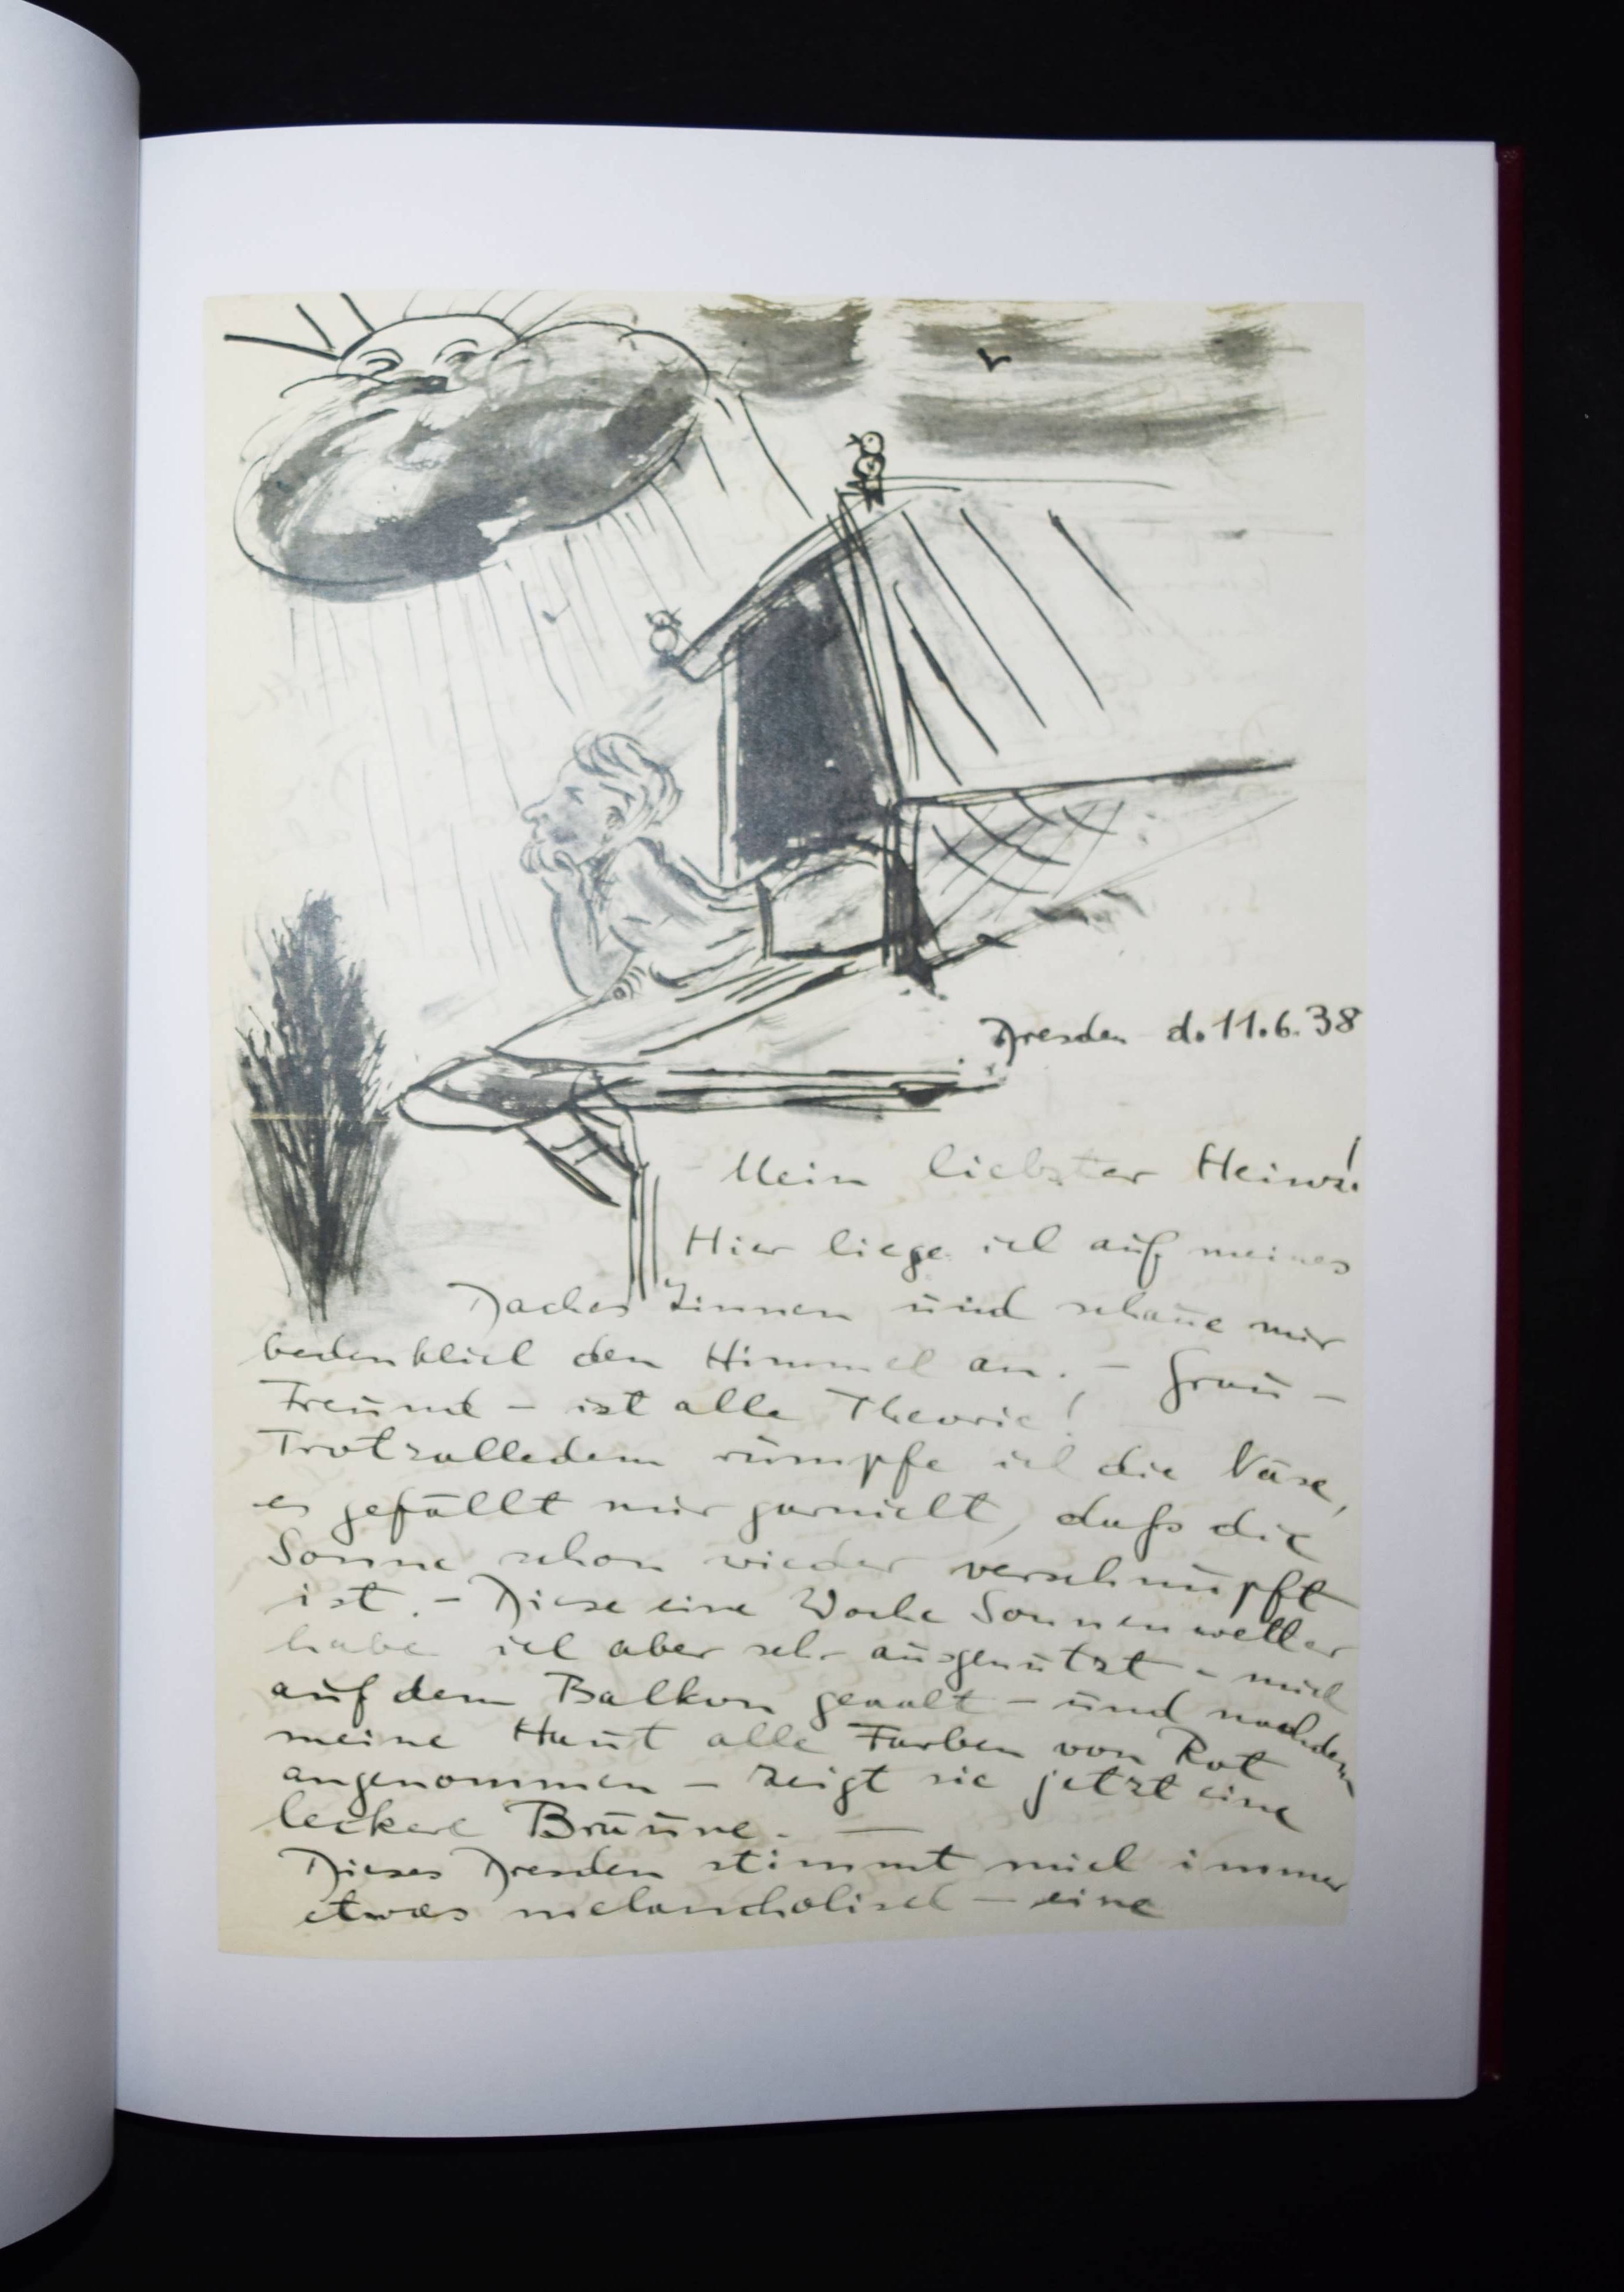 Dresden d. 11.6.38
Mein liebster Heinz!
Hier liege ich auf meines
Daches Zinnen und schaue mir
bedenklich den Himmel an. – Grau –
Freund – ist alle Theorie!
Trotzalledem rümpfe ich die Nase,
es gefällt mir garnicht, daß die
Sonne schon wieder verschnupft
ist. – Diese eine Woche Sonnenwetter
habe ich aber sehr ausgenutzt – mich
auf dem Balkon geaalt – und nachdem
meine Haut alle Farben von Rot
angenommen – zeigt sie jetzt eine
leckere Bräune. —
Dieses Dresden stimmt mich immer
etwas melancholisch – eine